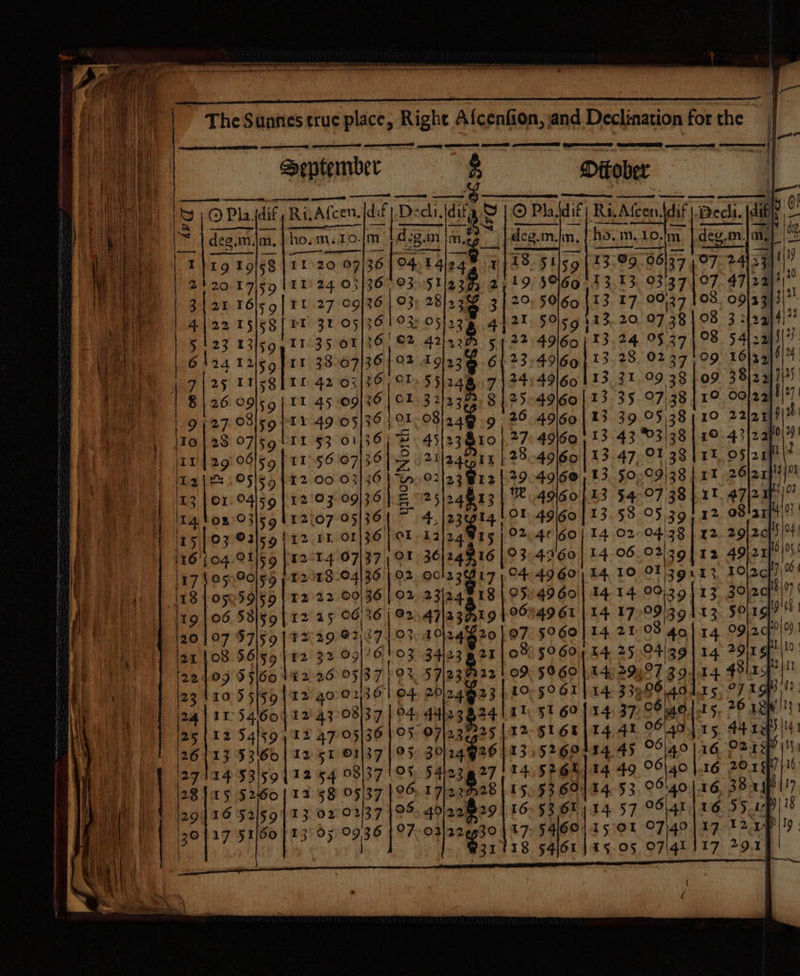 The Sunnes true place, Right Ascension, and Declination for the
September October
D | ☉ Pla. | dif | Ri. Ascen. | dif | Decli. | dif | D | ☉ Pla. | dif | Ri. Ascen. | dif | Decli. | dif
deg.m. | m. | ho. m. 10. | m | deg.m | m. | deg.m. | m. | ho. m. 10. | m | deg.m. | m.
1 | 19 19 | 58 | 11 20 07 | 36 | 04 14 | 24 | 1 | 18 51 | 59 | 13 09 06 | 37 | 07 24 | 23
2 | 20 17 | 59 | 11 24 03 | 36 | 03 51 | 23 | 2 | 19 50 | 60 | 13 13 03 | 37 | 07 47 | 22
3 | 21 16 | 59 | 11 27 09 | 36 | 03 28 | 23 | 3 | 20 50 | 60 | 13 17 00 | 37 | 08 09 | 23
4 | 22 15 | 58 | 11 31 05 | 36 | 03 05 | 23 | 4 | 21 50 | 59 | 13 20 07 | 38 | 08 32 | 22
5 | 23 13 | 59 | 11 35 01 | 36 | 02 42 | 23 | 5 | 22 49 | 60 | 13 24 05 | 37 | 08 54 | 22
6 | 24 12 | 59 | 11 38 07 | 36 | 02 19 | 23 | 6 | 23 49 | 60 | 13 28 02 | 37 | 09 16 | 22
7 | 25 11 | 58 | 11 42 03 | 36 | 01 55 | 24 | 7 | 24 49 | 60 | 13 31 09 | 38 | 09 38 | 22
8 | 26 09 | 59 | 11 45 09 | 36 | 01 32 | 23 | 8 | 25 49 | 60 | 13 35 07 | 38 | 10 00 | 22
9 | 27 08 | 59 | 11 49 05 | 36 | 01 08 | 24 | 9 | 26 49 | 60 | 13 39 05 | 38 | 10 22 | 21
10 | 28 07 | 59 | 11 53 01 | 36 | North 45 | 23 | 10 | 27 49 | 60 | 13 43 03 | 38 | 10 43 | 22
11 | 29 06 | 59 | 11 56 07 | 36 | 21 | 24 | 11 | 28 49 | 60 | 13 47 01 | 38 | 11 05 | 21
12 | ♎ 05 | 59 | 12 00 03 | 36 | South 02 | 23 | 12 | 29 49 | 60 | 13 50 09 | 38 | 11 26 | 21
13 | 01 04 | 59 | 12 03 09 | 36 | 25 | 24 | 13 | ♏ 49 | 60 | 13 54 07 | 38 | 11 47 | 21
14 | 02 03 | 59 | 12 07 05 | 36 | 4 | 23 | 14 | 01 49 | 60 | 13 58 05 | 39 | 12 08 | 21
15 | 03 02 | 59 | 12 11 01 | 36 | 01 12 | 24 | 15 | 02 49 | 60 | 14 02 04 | 38 | 12 29 | 20
16 | 04 01 | 59 | 12 14 07 | 37 | 01 36 | 24 | 16 | 03 49 | 60 | 14 06 02 | 39 | 12 49 | 21
17 | 05 00 | 59 | 12 18 04 | 36 | 02 00 | 23 | 17 | 04 49 | 60 | 14 10 01 | 39 | 13 10 | 20
18 | 05 59 | 59 | 12 22 00 | 36 | 02 23 | 24 | 18 | 05 49 | 60 | 14 14 00 | 39 | 13 30 | 20
19 | 06 58 | 59 | 12 25 06 | 36 | 02 47 | 23 | 19 | 06 49 | 61 | 14 17 09 | 39 | 13 50 | 19
20 | 07 57 | 59 | 12 29 02 | 37 | 03 10 | 24 | 20 | 07 50 | 60 | 14 21 08 | 40 | 14 09 | 20
21 | 08 56 | 59 | 12 32 09 | 36 | 03 34 | 23 | 21 | 08 50 | 60 | 14 25 04 | 39 | 14 29 | 19
22 | 09 55 | 60 | 12 36 05 | 37 | 03 57 | 23 | 22 | 09 50 | 60 | 14 29 07 | 39 | 14 48 | 19
23 | 10 55 | 59 | 12 40 02 | 36 | 04 20 | 24 | 23 | 10 50 | 61 | 14 33 06 | 40 | 15 07 | 19
24 | 11 54 | 60 | 12 43 08 | 37 | 04 44 | 23 | 24 | 11 51 | 60 | 14 37 06 | 40 | 15 26 | 18
25 | 12 54 | 59 | 12 47 05 | 36 | 05 07 | 23 | 25 | 12 51 | 61 | 14 41 06 | 40 | 15 44 | 18
26 | 13 53 | 60 | 12 51 01 | 37 | 05 30 | 24 | 26 | 13 52 | 60 | 14 45 06 | 40 | 16 02 | 18
27 | 14 53 | 59 | 12 54 08 | 37 | 05 54 | 23 | 27 | 14 52 | 61 | 14 49 06 | 40 | 16 20 | 18
28 | 15 52 | 60 | 12 58 05 | 37 | 06 17 | 23 | 28 | 15 53 | 60 | 14 53 06 | 40 | 16 38
29 | 16 52 | 59 | 13 02 02 | 37 | 06 40 | 22 | 29 | 16 53 | 61 | 14 57 06 | 41 | 16 55
30 | 17 51 | 60 | 13 05 09 | 36 | 07 02 | 22 | 30 | 17 54 | 60 | 15 01 07 | 40 | 17 12
31 | 18 54 | 61 | 15 05 07 | 41 | 17 29